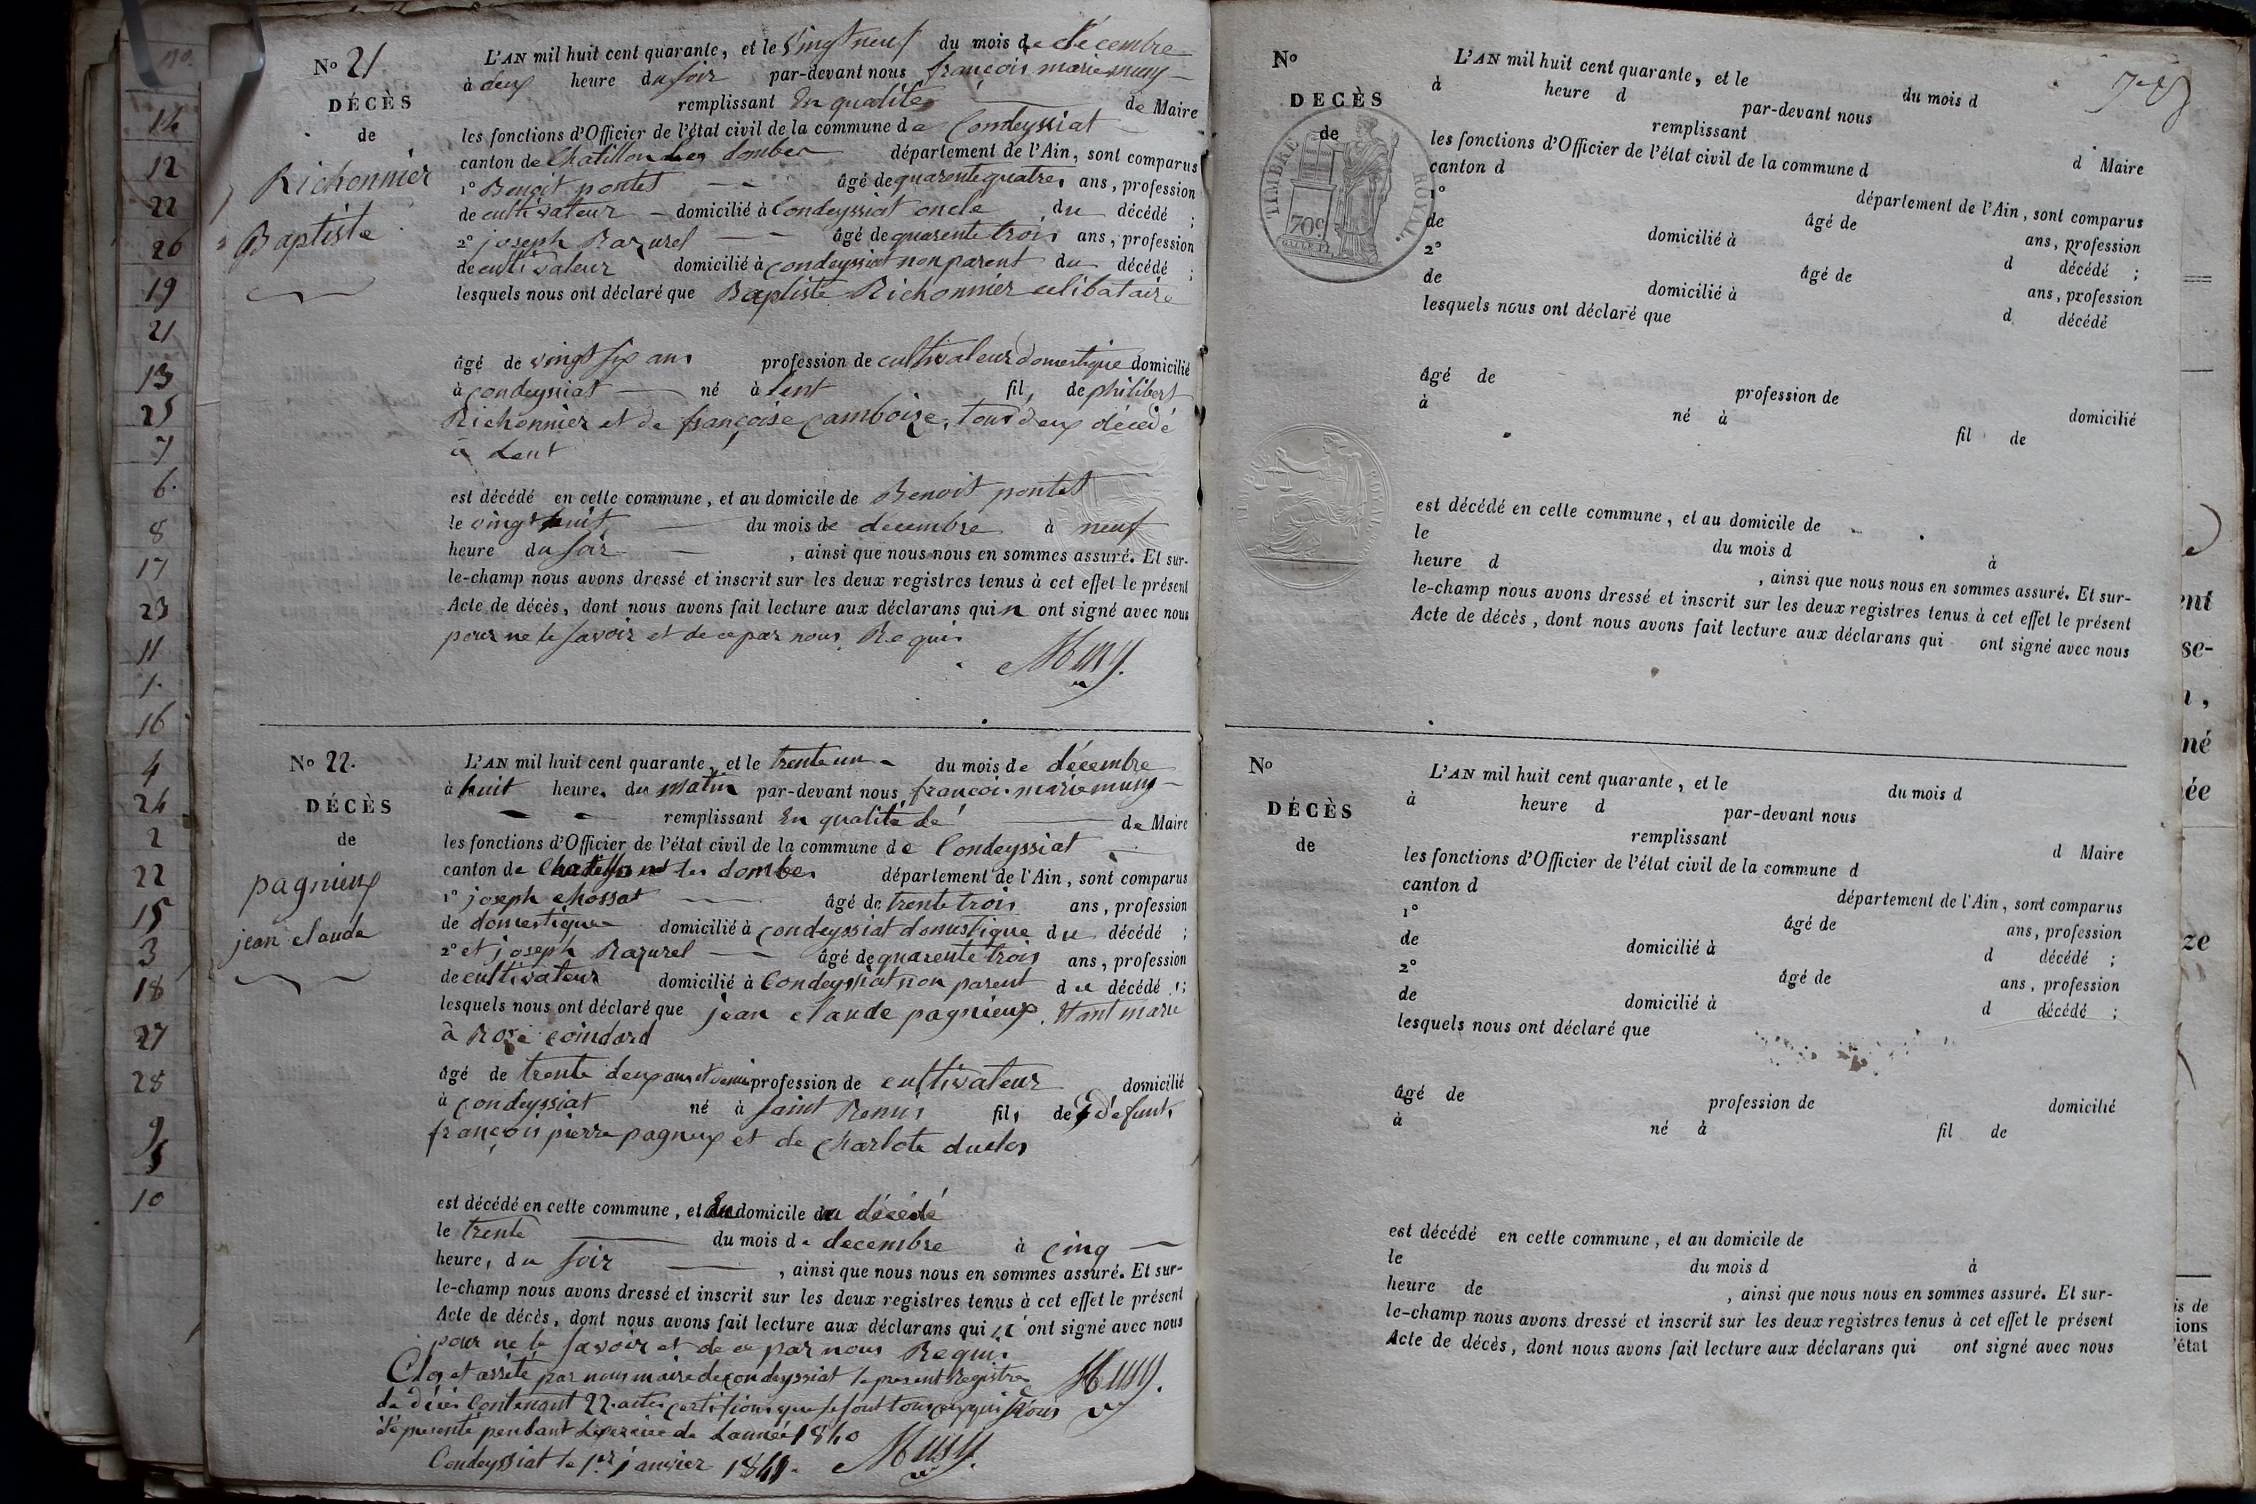 130.
14
12
22
26
19
21
13
25
7
6.
8
17
23
11
1.
16
4
24
2
22
15
3
18
27
28
9
5
10
No 21
DÉCÈS
de
Richonnier
Baptiste
L'AN mil huit cent quarante, et le vingt neuf du mois de décembre
à deux heure du soir par-devant nous françois marie musy
remplissant En qualité de Maire
les fonctions d'Officier de l'état civil de la commune de Condeyssiat
canton de Chatillon les dombes département de l'Ain, sont comparus
1° Benoit pontet âgé de quarente quatre, ans, profession
de cultivateur domicilié à Condeyssiat oncle du décédé ;
2° joseph Razurel âgé de quarente trois ans, profession
de cultivateur domicilié à condeyssiat non parent du décédé ;
lesquels nous ont déclaré que Baptiste Richonnier celibataire
âgé de vingt six ans profession de cultivateur domestique domicilié
à condeyssiat né à lent fils de philibert
Richonnier et de françoise camboize, tous deux décédé
à Lent
est décédé en cette commune, et au domicile de Benoit pontet
le vingt huit du mois de décembre à neuf
heure du soir , ainsi que nous nous en sommes assuré. Et sur-
le-champ nous avons dressé et inscrit sur les deux registres tenus à cet effet le présent
Acte de décès, dont nous avons fait lecture aux déclarans qui n ont signé avec nous
pour ne le savoir et de ce par nous Requis
Musy.
No 22.
DÉCÈS
de
pagnieux
jean claude
L'AN mil huit cent quarante, et le trente un du mois de décembre
à huit heure, du matin par-devant nous françois marie musy
remplissant En qualité de de Maire
les fonctions d'Officier de l'état civil de la commune de Condeyssiat
canton de Chatillon les dombes département de l'Ain, sont comparus
1° joseph chossat âgé de trente trois ans, profession
de domestique domicilié à condeyssiat domestique du décédé ;
2° et joseph Razurel âgé de quarente trois ans, profession
de cultivateur domicilié à Condeyssiat non parent du décédé ;
lesquels nous ont déclaré que jean claude pagnieux, Etant marié
à Rose coindard
âgé de trente deux ans et demi profession de cultivateur domicilié
à condeyssiat né à saint Remis fils de défunts
françois pierre pagneux et de charlote duclos
est décédé en cette commune, et au domicile du décédé
le trente du mois de decembre à cinq
heure, du soir , ainsi que nous nous en sommes assuré. Et sur-
le-champ nous avons dressé et inscrit sur les deux registres tenus à cet effet le présent
Acte de décès, dont nous avons fait lecture aux déclarans qui n'ont signé avec nous
pour ne le savoir et de ce par nous Requis
Musy.
Clos et arrêté par nous maire de condeyssiat le present Registre
de décès Contenant 22 actes certifions que se sont tous ceux qui nous
pendant de Lannée 1840
Condeyssiat le 1er janvier 1841.
Musy.
No
DECÈS
de
TIMBRE ROYAL.
70c
L'AN mil huit cent quarante, et le du mois d
à heure d par-devant nous
remplissant d Maire
les fonctions d'Officier de l'état civil de la commune d
canton d département de l'Ain, sont comparus
1° âgé de ans, profession
de domicilié à d décédé ;
2° âgé de ans, profession
de domicilié à d décédé
lesquels nous ont déclaré que
âgé de profession de domicilié
à né à fil de
est décédé en cette commune, et au domicile de
le du mois d à
heure d , ainsi que nous nous en sommes assuré. Et sur-
le-champ nous avons dressé et inscrit sur les deux registres tenus à cet effet le présent
Acte de décès, dont nous avons fait lecture aux déclarans qui ont signé avec nous
No
DÉCÈS
de
L'AN mil huit cent quarante, et le du mois d
à heure d par-devant nous
remplissant d Maire
les fonctions d'Officier de l'état civil de la commune d
canton d département de l'Ain, sont comparus
1° âgé de ans, profession
de domicilié à d décédé ;
2° âgé de ans, profession
de domicilié à d décédé ;
lesquels nous ont déclaré que
âgé de profession de domicilié
à né à fil de
est décédé en cette commune, et au domicile de
le du mois d à
heure de , ainsi que nous nous en sommes assuré. Et sur-
le-champ nous avons dressé et inscrit sur les deux registres tenus à cet effet le présent
Acte de décès, dont nous avons fait lecture aux déclarans qui ont signé avec nous
ent
se-
né
ée
ze
is de
ions
'état